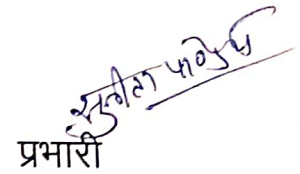 सुनीता पाण्डेय
प्रभारी